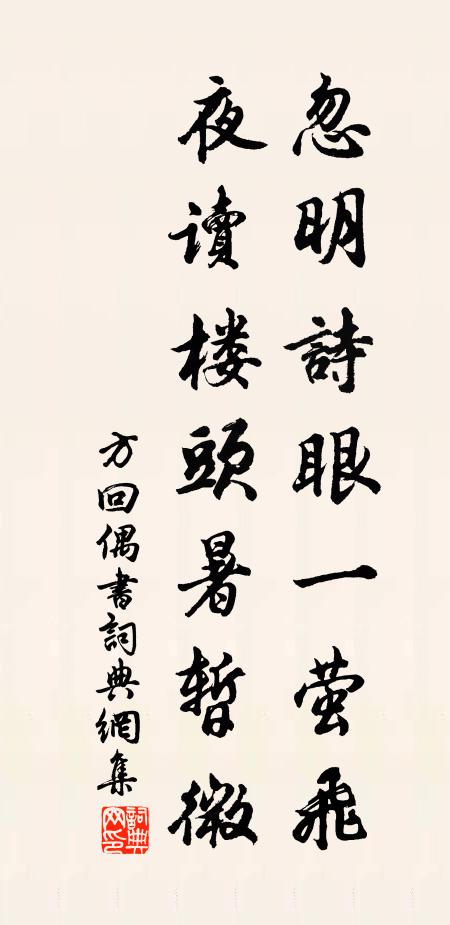 忽明詩眼一萤飛
夜读楼頭暑暫微
方回偶書詞典網集
詞典網印